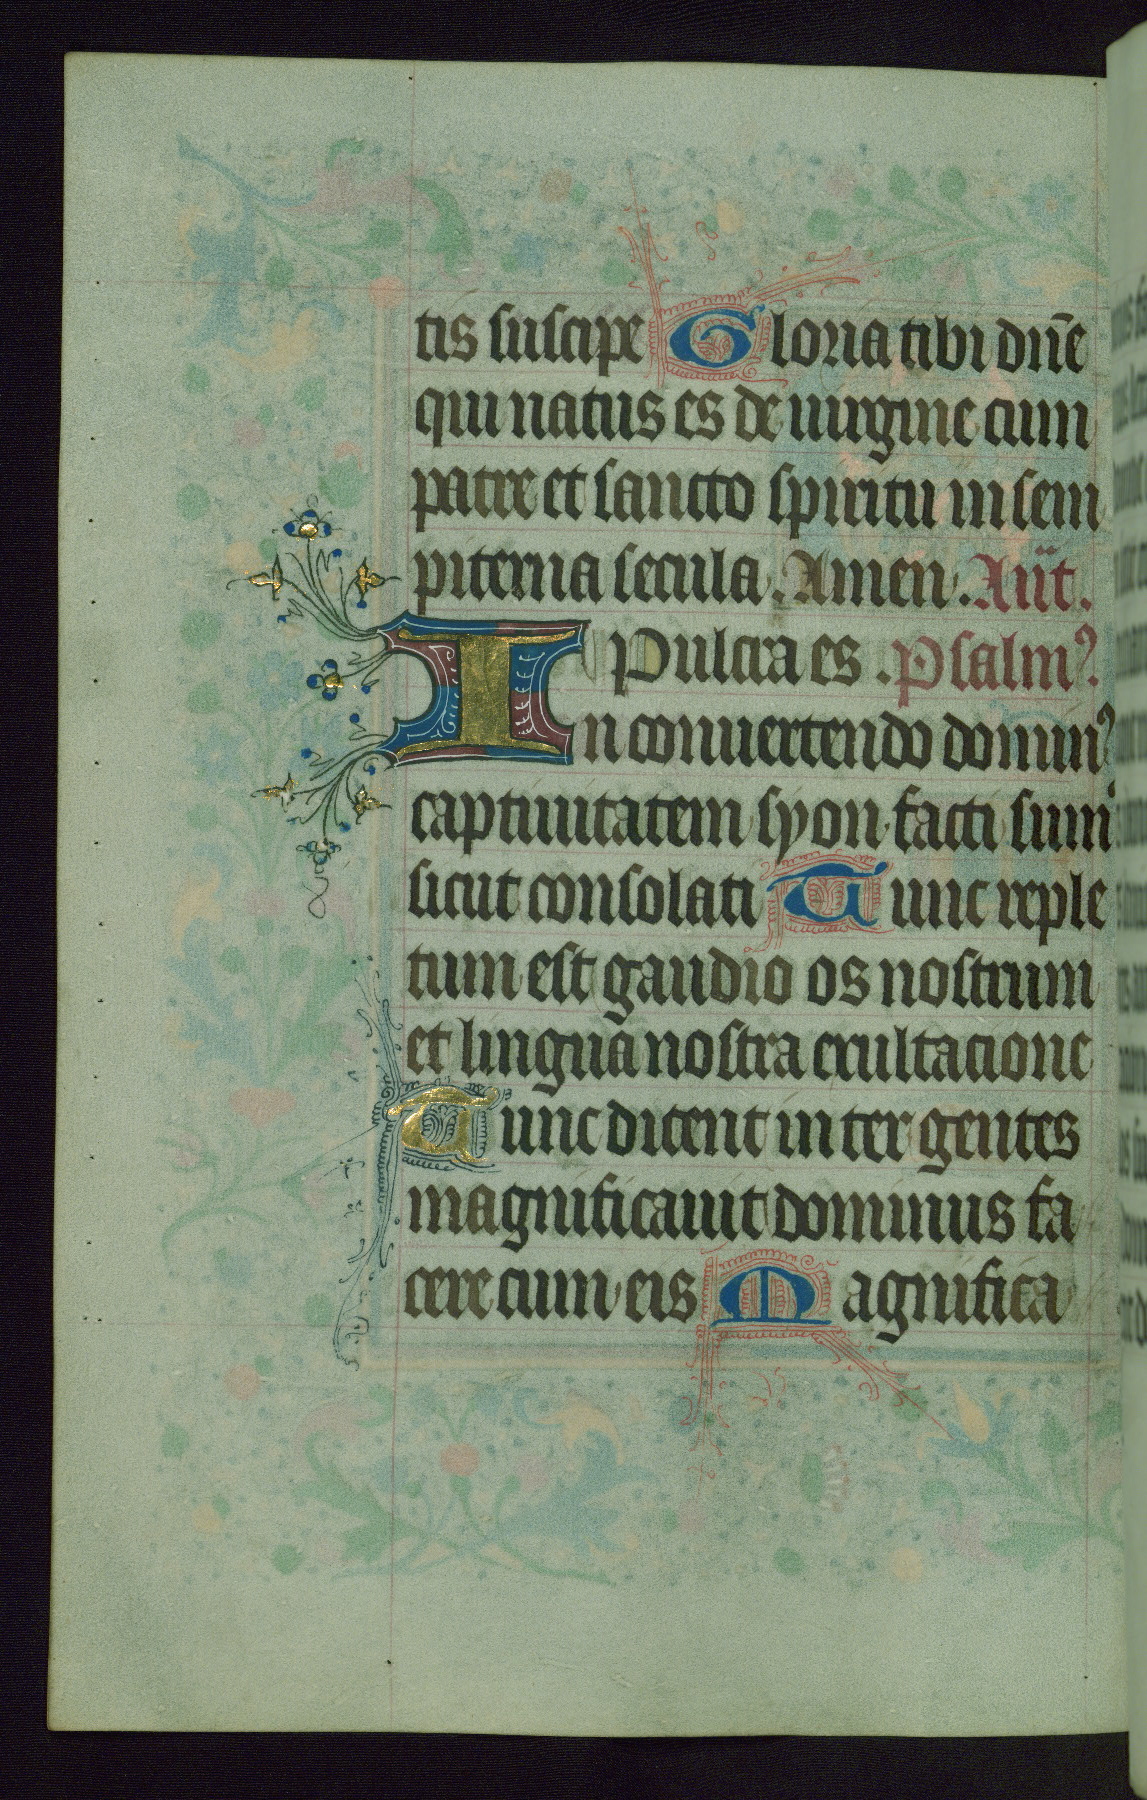 tis suscipe Gloria tibi dn̄e
qui natus es de uirgine cum
patre et sancto spiritu in sem
piterna secula. Amen. An̄t.
Pulcra es. Psalm᾿.
In conuertendo domin᾿
captiuitatem syon facti sum᾿
sicut consolati Tunc reple
tum est gaudio os nostrum
et lingua nostra exultatione
Tunc dicent inter gentes
magnificauit dominus fa
cere cum eis Magnifica